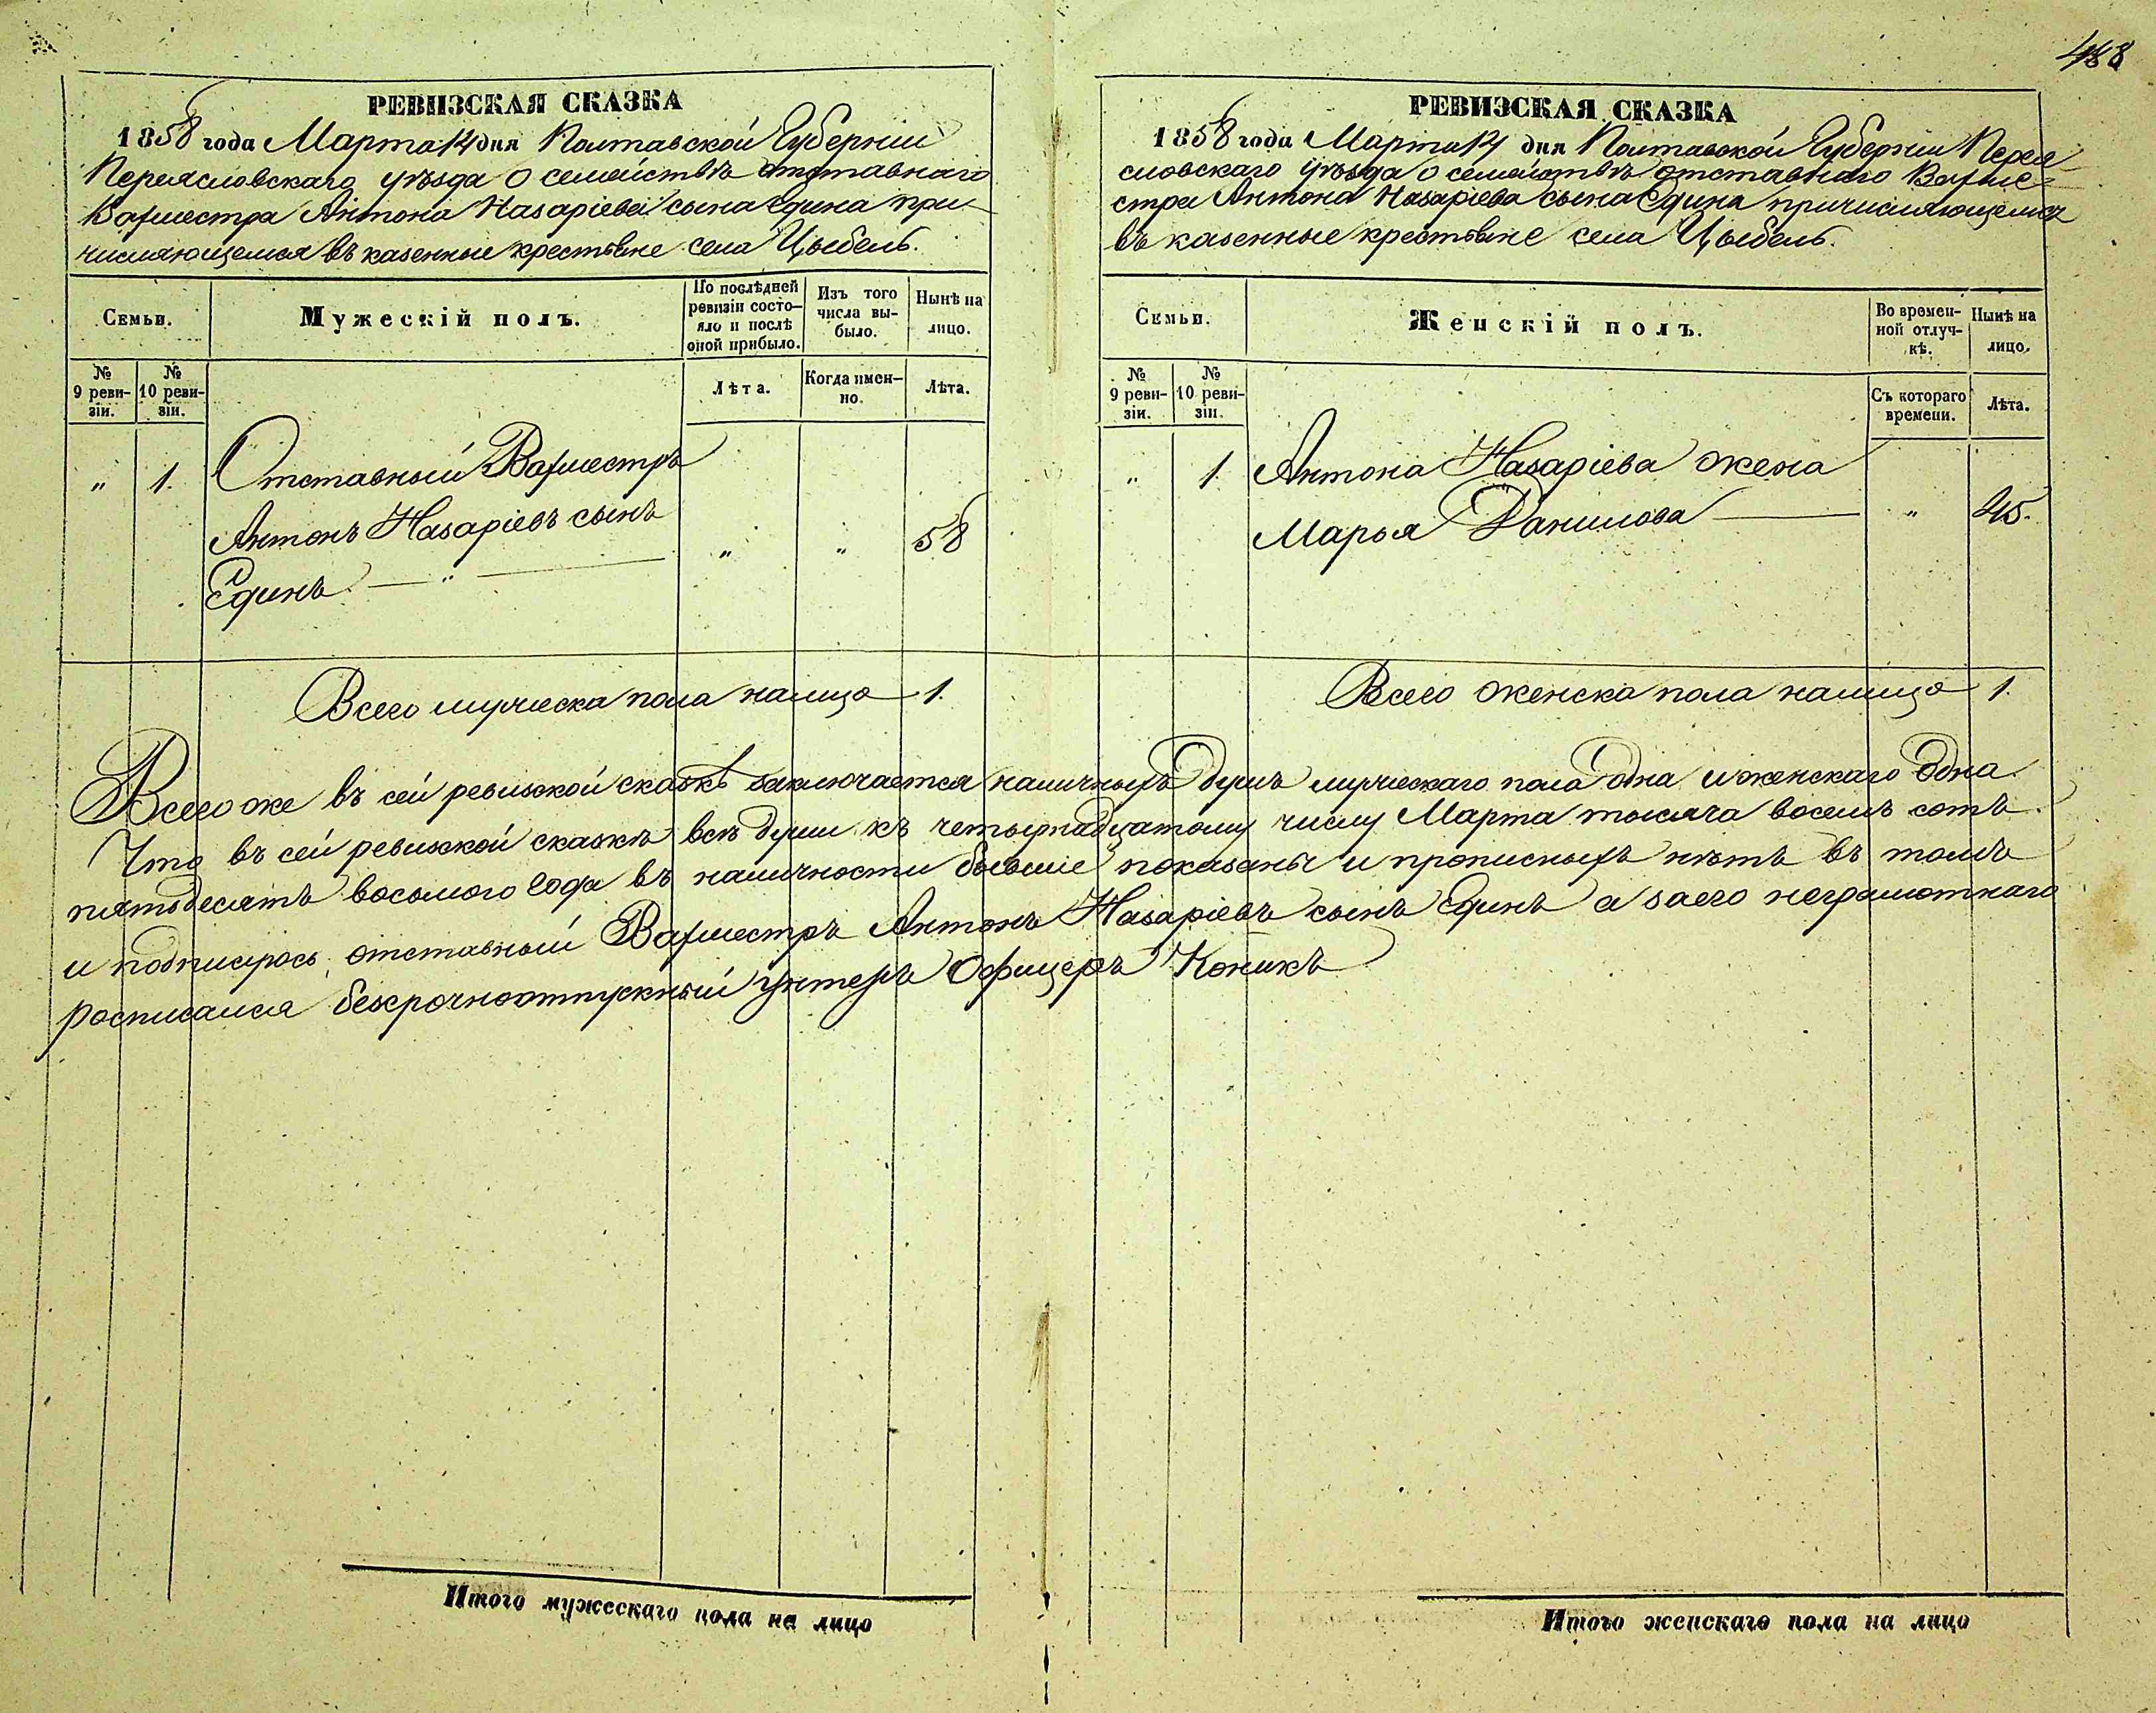 488
РЕВИЗСКАЯ СКАЗКА
1858 года Марта 14 дня Полтавской Губерніи
Переясловскаго уѣзда о семействѣ отставнаго
Вахместра Антона Назаріева сына Едина при-
числяющемся въ казенные крестьяне села Цыбель.
Семьи.
Мужескій полъ.
По послѣдней ревизіи состо-яло и послѣ оной прибыло.
Изъ того числа вы-было.
Нынѣ на лицо.
№ 9 реви-зіи.
№ 10 реви-зіи.
Лѣта.
Когда имен-но.
Лѣта.
„ 1. Отставный Вахместръ
Антонъ Назаріевъ сынъ
Единъ — „ — „ „ 58
Всего мужеска пола налицо 1.
РЕВИЗСКАЯ СКАЗКА
1858 года Марта 14 дня Полтавской Губерніи Перея
словскаго уѣзда о семействѣ отставнаго Вахме-
стра Антона Назаріева сына Едина причисляющемся
въ казенные крестьяне села Цыбель.
Семьи.
Женскій полъ.
Во времен-ной отлуч-кѣ.
Нынѣ на лицо.
№ 9 реви-зіи.
№ 10 реви-зіи.
Съ котораго времени.
Лѣта.
„ 1 Антона Назаріева жена
Марья Данилова — „ 45.
Всего женска пола налицо 1.
Всего же въ сей ревизской сказкѣ заключается наличныхъ душъ мужескаго пола одна и женскаго одна.
Что въ сей ревизской сказкѣ всѣ души къ четырнадцатому числу Марта тысяча восемь сотъ
пятьдесятъ восьмого года въ наличности бывшіе показаны и прописныхъ нѣтъ въ томъ
и подписуюсь, отставный Вахместръ Антонъ Назаріевъ сынъ Единъ а за его неграмотнаго
росписался безсрочноотпускный унтеръ Офицеръ Коникъ
Итого мужескаго пола на лицо
Итого женскаго пола на лицо